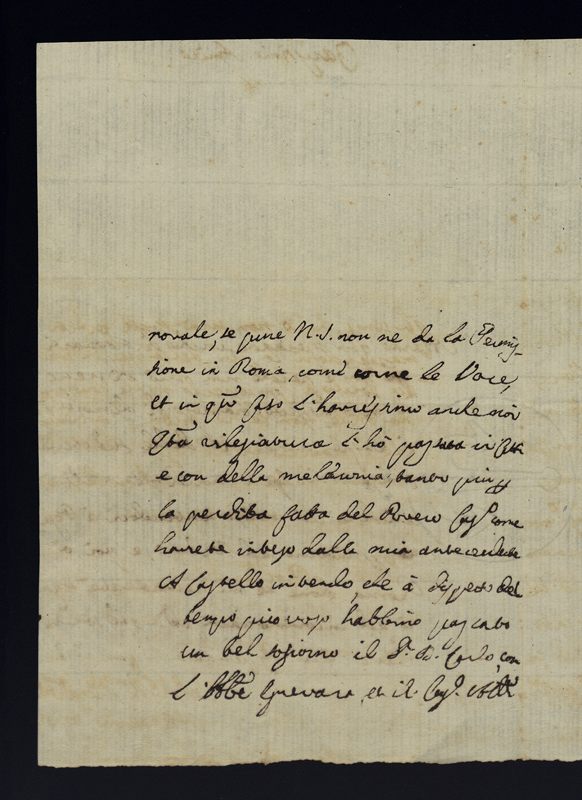 novale, se pure N. S. non ne da la Permis-
sione in Roma, come corre le Voce,
et in q̃to caso l'havressimo anche noi
Q̃ta villegiatura l'hò passata in
e con della melaconia, tanto più p
la perdita fatta del Povero Cap.o come
havrete inteso dalla mia antecedente
A Castello intendo, che à dispetto del
tempo piovoso habbino passato
un bel sogiorno il P. D. Carlo, con
L'Abbe Guevara, et il Cap.